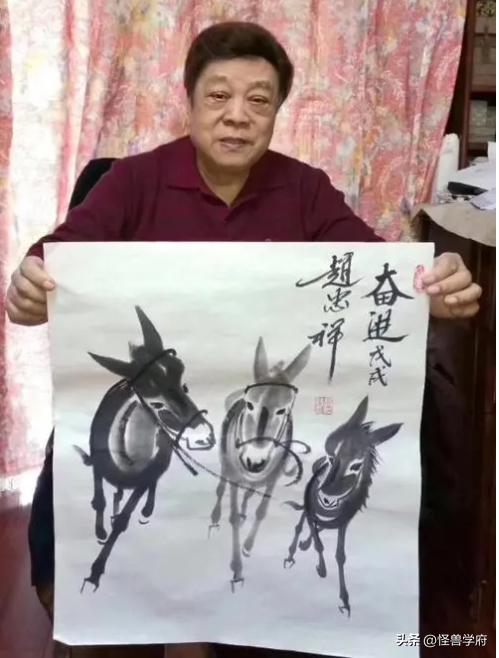 奋进戊戌
趙忠祥
头条 @怪兽学府